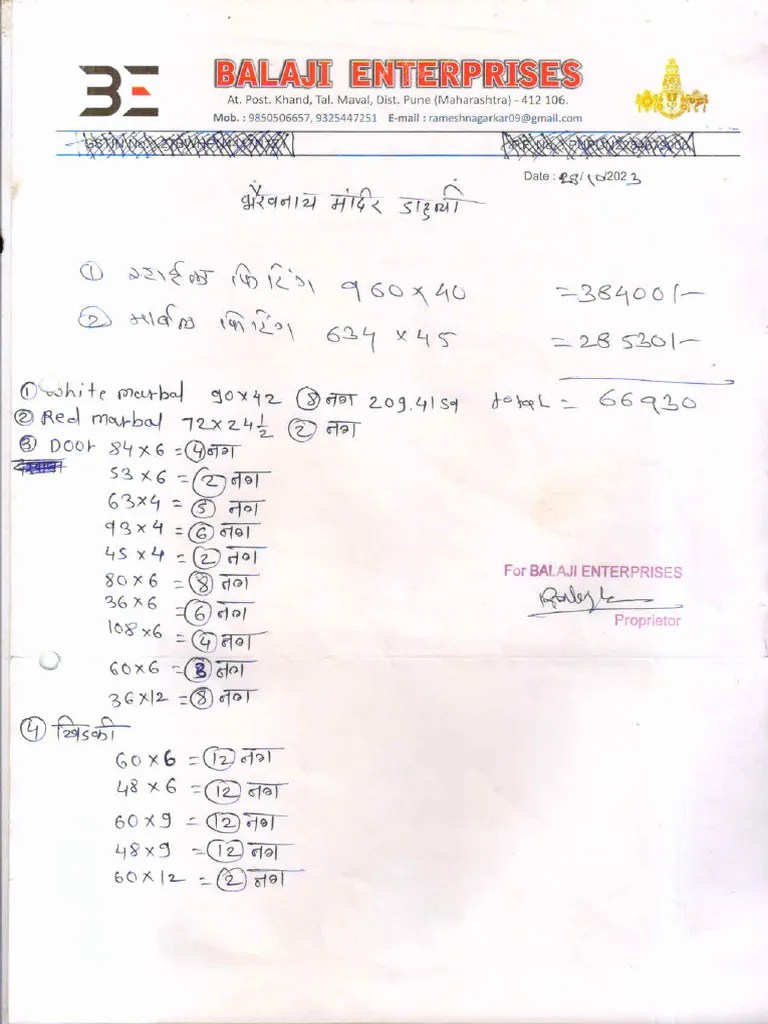 BE
BALAJI ENTERPRISES
At. Post. Khand, Tal. Maval, Dist. Pune (Maharashtra) - 412 106.
Mob. : 9850506657, 9325447251 E-mail : rameshnagarkar09@gmail.com
Date : 28/10/2023
भैरवनाथ मंदिर
① स्टाईल फिटिंग 960 × 40 = 38400/-
② मार्बल फिटिंग 634 × 45 = 28530/-
total = 66930
① White marbal 90×42 ⑧ नग 209.4159
② Red marbal 72×24½ ② नग
③ Door 84×6 = ④ नग
53×6 = ② नग
63×4 = ⑤ नग
93×4 = ⑥ नग
45×4 = ② नग
80×6 = ⑧ नग
36×6 = ⑥ नग
108×6 = ④ नग
60×6 = नग
36×12 = ⑧ नग
④ खिडकी
60×6 = ⑫ नग
48×6 = ⑫ नग
60×9 = ⑫ नग
48×9 = ⑫ नग
60×12 = ② नग
For BALAJI ENTERPRISES
Proprietor